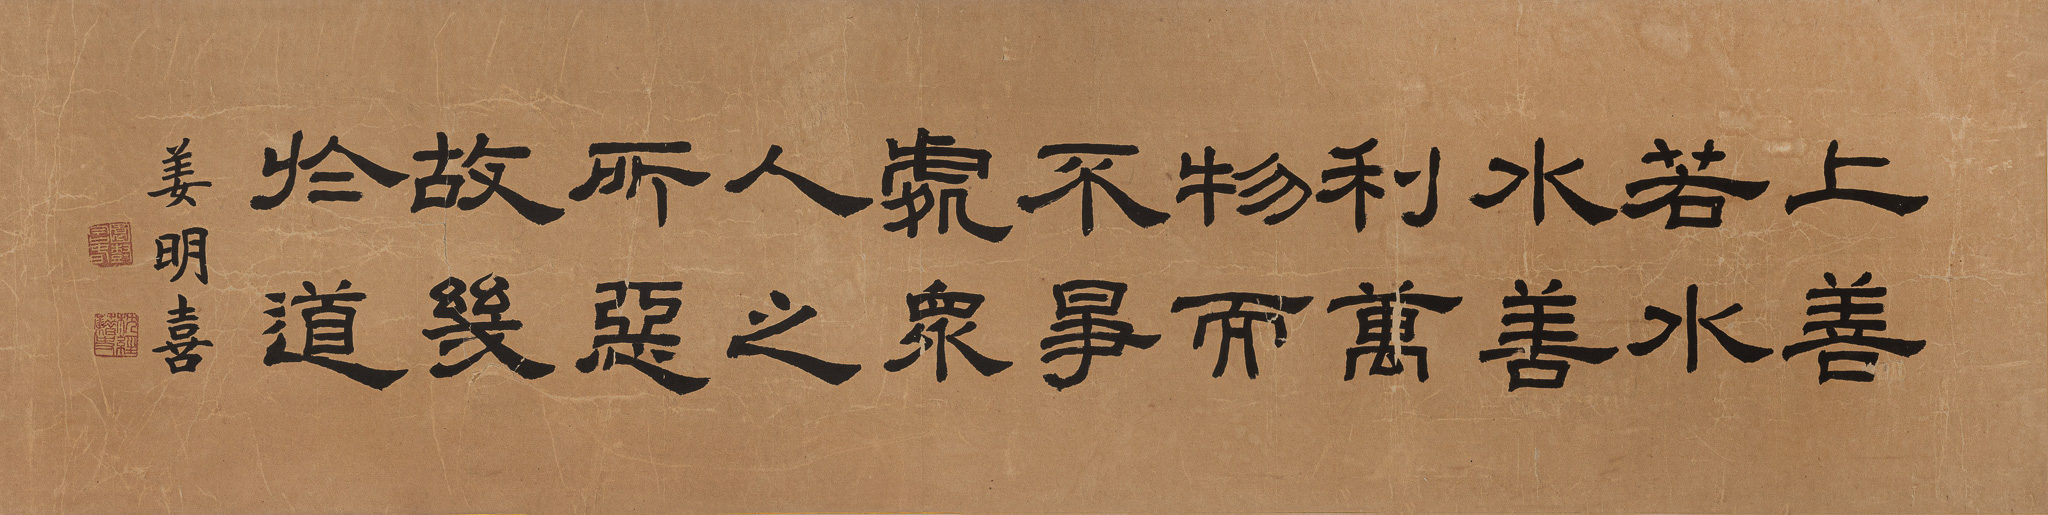 上善
若水
水善
利萬
物而
不爭
處衆
人之
所惡
故幾
於道
姜明喜